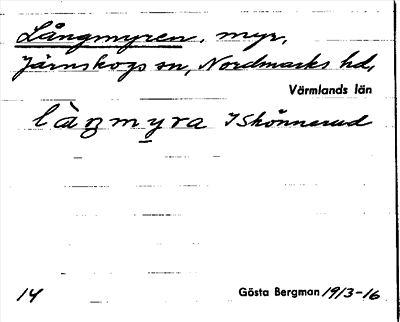 Långmyren, myr,
Järnskogs sn, Nordmarks hd,
Värmlands län
làŋmyra I Skönnerud
14 Gösta Bergman 1913-16